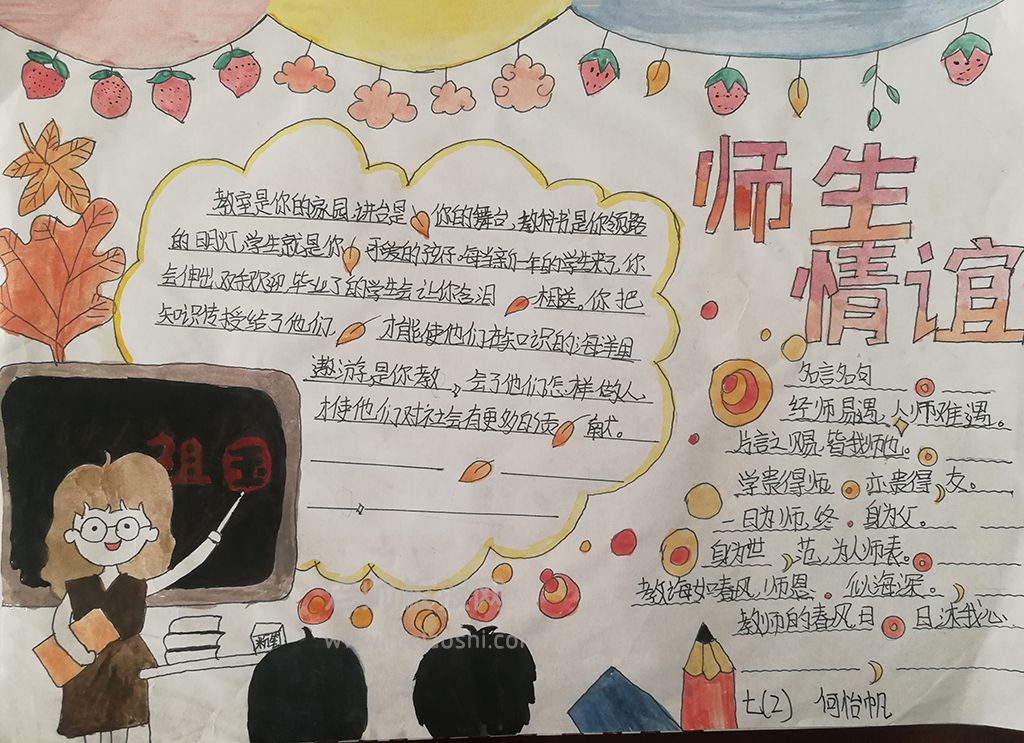 师生
情谊
教室是你的家园,讲台是你的舞台,教科书是你领路
的明灯,学生就是你可爱的孩子。每当新一年的学生来了,你
会伸出双手欢迎,毕业了的学生会让你含泪相送。你把
知识传授给了他们,才能使他们在知识的海洋里
遨游,是你教会了他们怎样做人
才使他们对社会有更多的贡献。
祖国
名言名句
经师易遇,人师难遇。
片言之赐,皆我师也。
学贵得师,亦贵得友。
一日为师,终身为父。
身为世范,为人师表。
教海如春风,师恩似海深。
教师的春风,日日沐我心
粉刷
七(2) 何怡帆